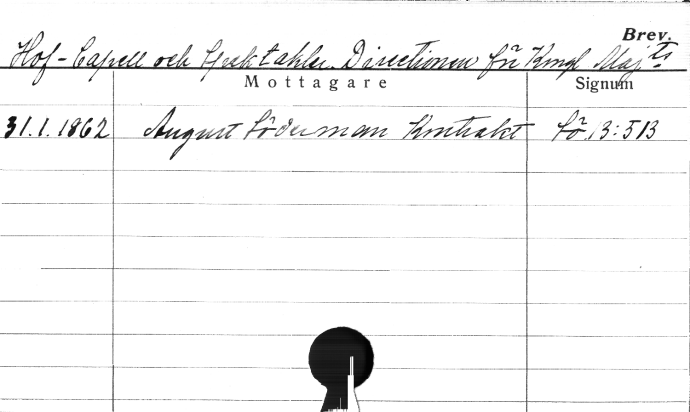 Brev.
Hof-Capell och Spektakler Directionen för Kongl. Majts
Mottagare Signum
31.1.1862 August Söderman Kontrakt Sö 13:513